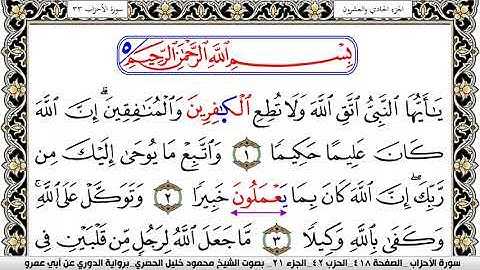 الجزء الحادي والعشرون
سورة الأحزاب ٣٣
بِسْمِ اللَّهِ الرَّحْمَٰنِ الرَّحِيمِ
يَـٰٓأَيُّهَا النَّبِىُّ اتَّقِ اللَّهَ وَلَا تُطِعِ الْكَـٰفِرِينَ وَالْمُنَـٰفِقِينَ ۗ إِنَّ اللَّهَ
كَانَ عَلِيمًا حَكِيمًا ١ وَاتَّبِعْ مَا يُوحَىٰٓ إِلَيْكَ مِن
رَّبِّكَ ۚ إِنَّ اللَّهَ كَانَ بِمَا يَعْمَلُونَ خَبِيرًا ٢ وَتَوَكَّلْ عَلَى اللَّهِ ۚ
وَكَفَىٰ بِاللَّهِ وَكِيلًا ٣ مَّا جَعَلَ اللَّهُ لِرَجُلٍ مِّن قَلْبَيْنِ فِى
سورة الأحزاب _ الصفحة ٤١٨_ الحزب ٤٢_ الجزء ٢١ _ بصوت الشيخ محمود خليل الحصري_ برواية الدوري عن أبي عمرو